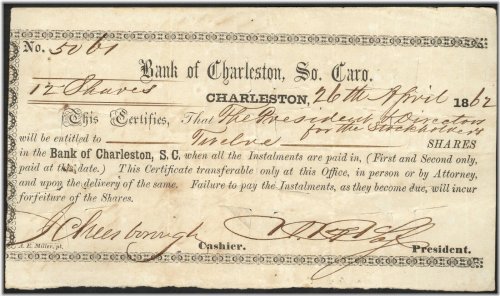 No. 5061
Bank of Charleston, So. Caro.
12 Shares
CHARLESTON, 26th April 1862
This Certifies, That The President & Directors
for the Stockholders
will be entitled to Twelve SHARES
in the Bank of Charleston, S.C. when all the Instalments are paid in, (First and Second only,
paid at this date.) This Certificate transferable only at this Office, in person or by Attorney,
and upon the delivery of the same. Failure to pay the Instalments, as they become due, will incur
forfeiture of the Shares.
J Cheesborough
Cashier. President.
A. E. Miller, pt.